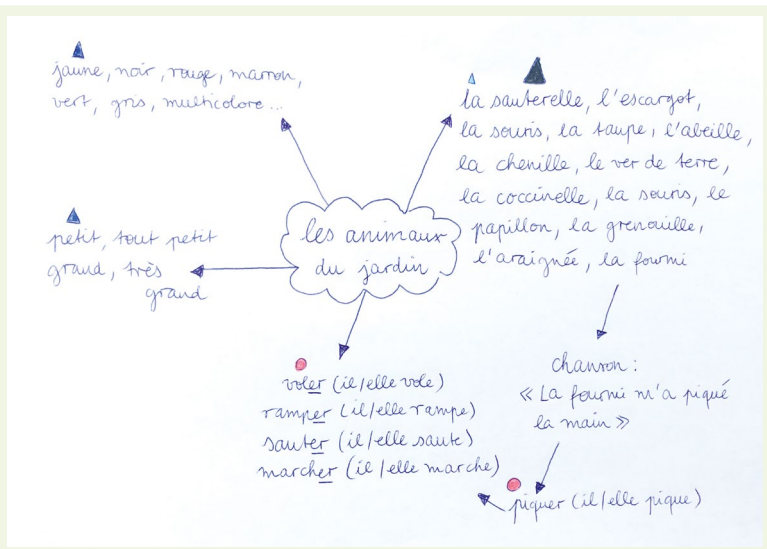 jaune, noir, rouge, marron,
vert, gris, multicolore...
la sauterelle, l'escargot,
la souris, la taupe, l'abeille,
la chenille, le ver de terre,
la coccinelle, la souris, le
papillon, la grenouille,
l'araignée, la fourmi
petit, tout petit
grand, très
grand
les animaux
du jardin
voler (il/elle vole)
ramper (il/elle rampe)
sauter (il/elle saute)
marcher (il/elle marche)
chanson :
« La fourmi m'a piqué
la main »
piquer (il/elle pique)